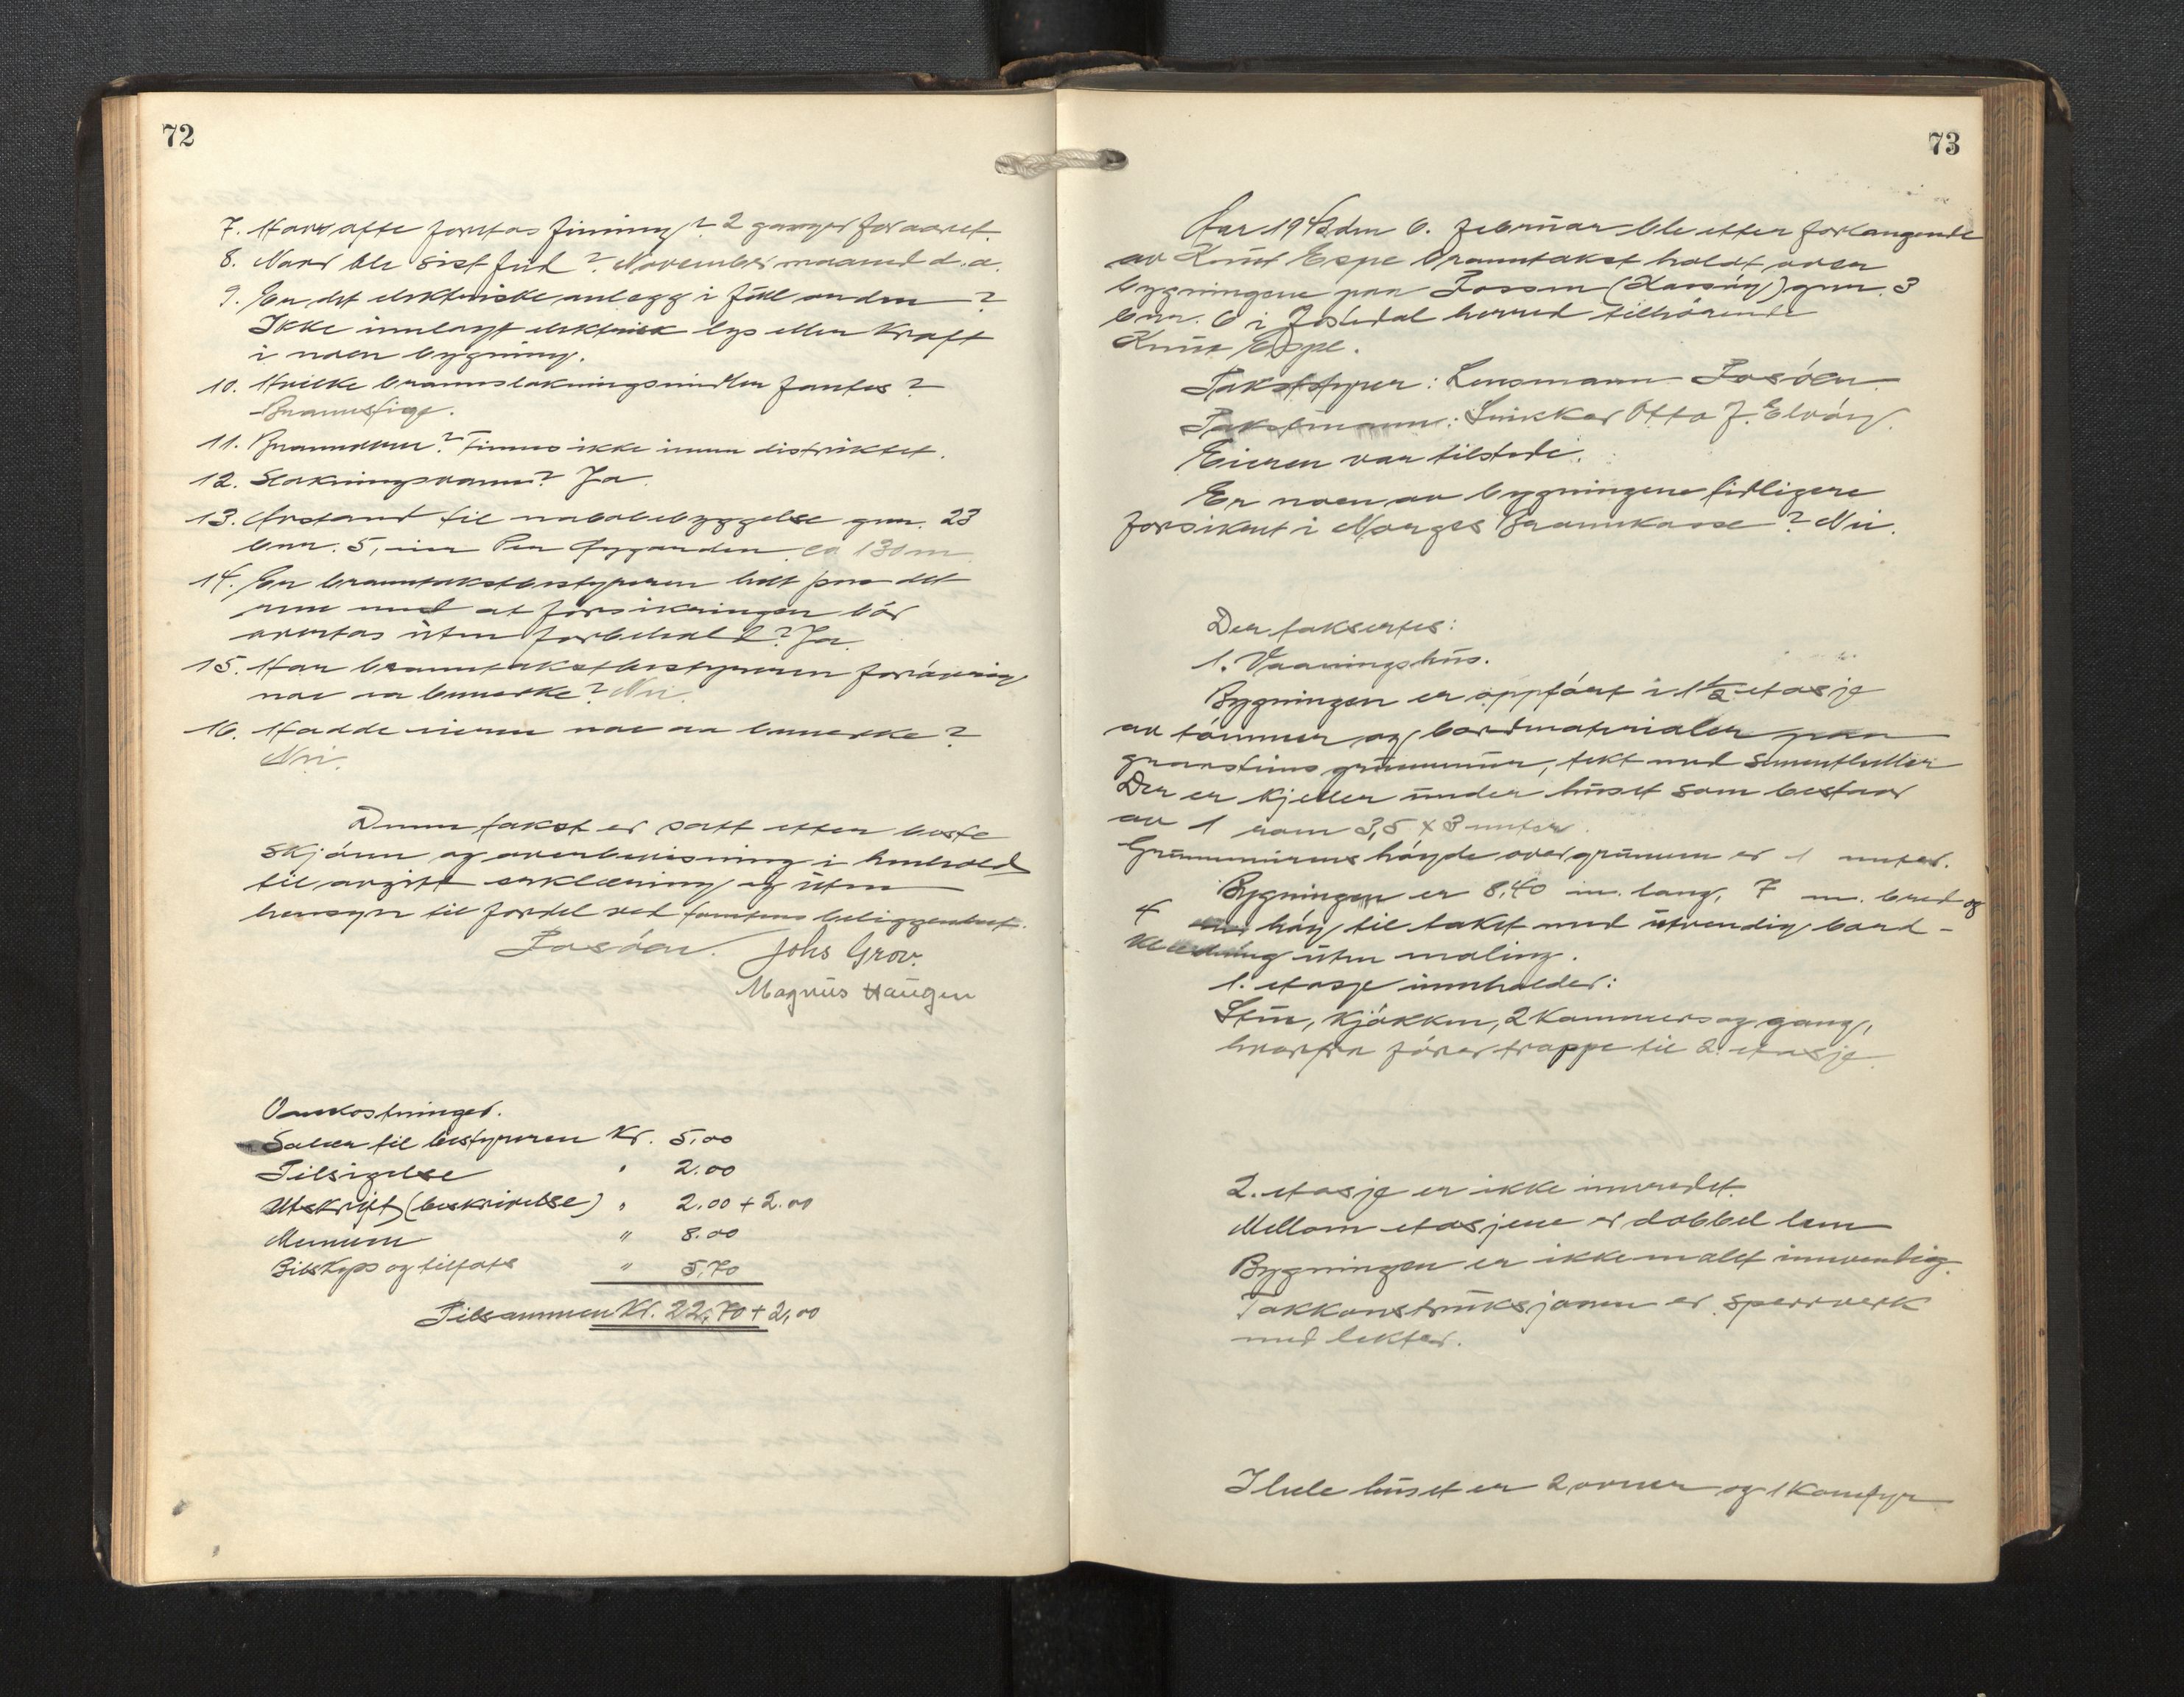 72
7. Hvor ofte foretas feiing? 2 ganger for aaret.
8. Naar ble sist feid? November maaned d.a.
9. Er det elektriske anlegg i full orden?
Ikke innlagt elektrisk lys eller kraft
i noen bygning.
10. Hvilke brannslokningsmidler fantes?
Brannstige.
11. Brannvern? Finnes ikke innen distriktet.
12. Slokningsvann? Ja.
13. Avstand til nabobebyggelse gnr. 23
bnr. 5, eier Per ca 130 m
14. Er branntakstbestyreren helt paa det
rene med at forsikringen bör
overtas uten forbehold? Ja.
15. Har branntakstbestyreren forövrig
noe aa bemerke? Nei.
16. Hadde eieren noe aa bemerke?
Nei.
Denne takst er satt etter beste
skjönn og overbevisning i henhold
til avgitt erklæring og uten
hensyn til fordel ved tomtens beliggenhet.
Fosöen. Johs Grov.
Magnus Haugen
Omkostninger.
Salær til bestyreren Kr. 5,00
Tilsigelse " 2.00
Utskrift (beskrivelse) " 2.00 + 2.00
Mennene " 8.00
Bilskyss og tilfots " 5,70
Tilsammen Kr. 22,70 + 2,00
73
Aar 1942 den 6. februar ble etter forlangende
av Knut Espe branntakst holdt over
bygningene paa Fossen gnr. 3
bnr. 6 i Jostedal herred tilhörende
Knut Espe.
Takststyrer: Lensmann Fosöen.
Takstmann: Snikker Otto J. Elvöy.
Eieren var tilstede.
Er noen av bygningene tidligere
forsikret i Norges Brannkasse? Nei.
Der taksertes:
1. Vaaningshus.
Bygningen er oppfört i 1 1/2 etasje
av tömmer og bordmaterialer paa
graasteins grunnmur, tekt med sementheller
Der er kjeller under huset som bestaar
av 1 rom 3,5 x 3 meter.
Grunnmurens höyde over grunnen er 1 meter.
Bygningen er 8,40 m. lang, 7 m. bred og
4 m. höy til taket med utvendig bord-
kledning uten maling.
1. etasje inneholder:
Stue, kjökken, 2 kammers og gang,
hvorfra förer trappe til 2. etasje
2. etasje er ikke innredet.
Mellom etasjene er dobbel lem
Bygningen er ikke malt innvendig.
Takkonstruksjonen er sperrverk
med lekter.
I hele huset er 2 ovner og 1 Komfyr